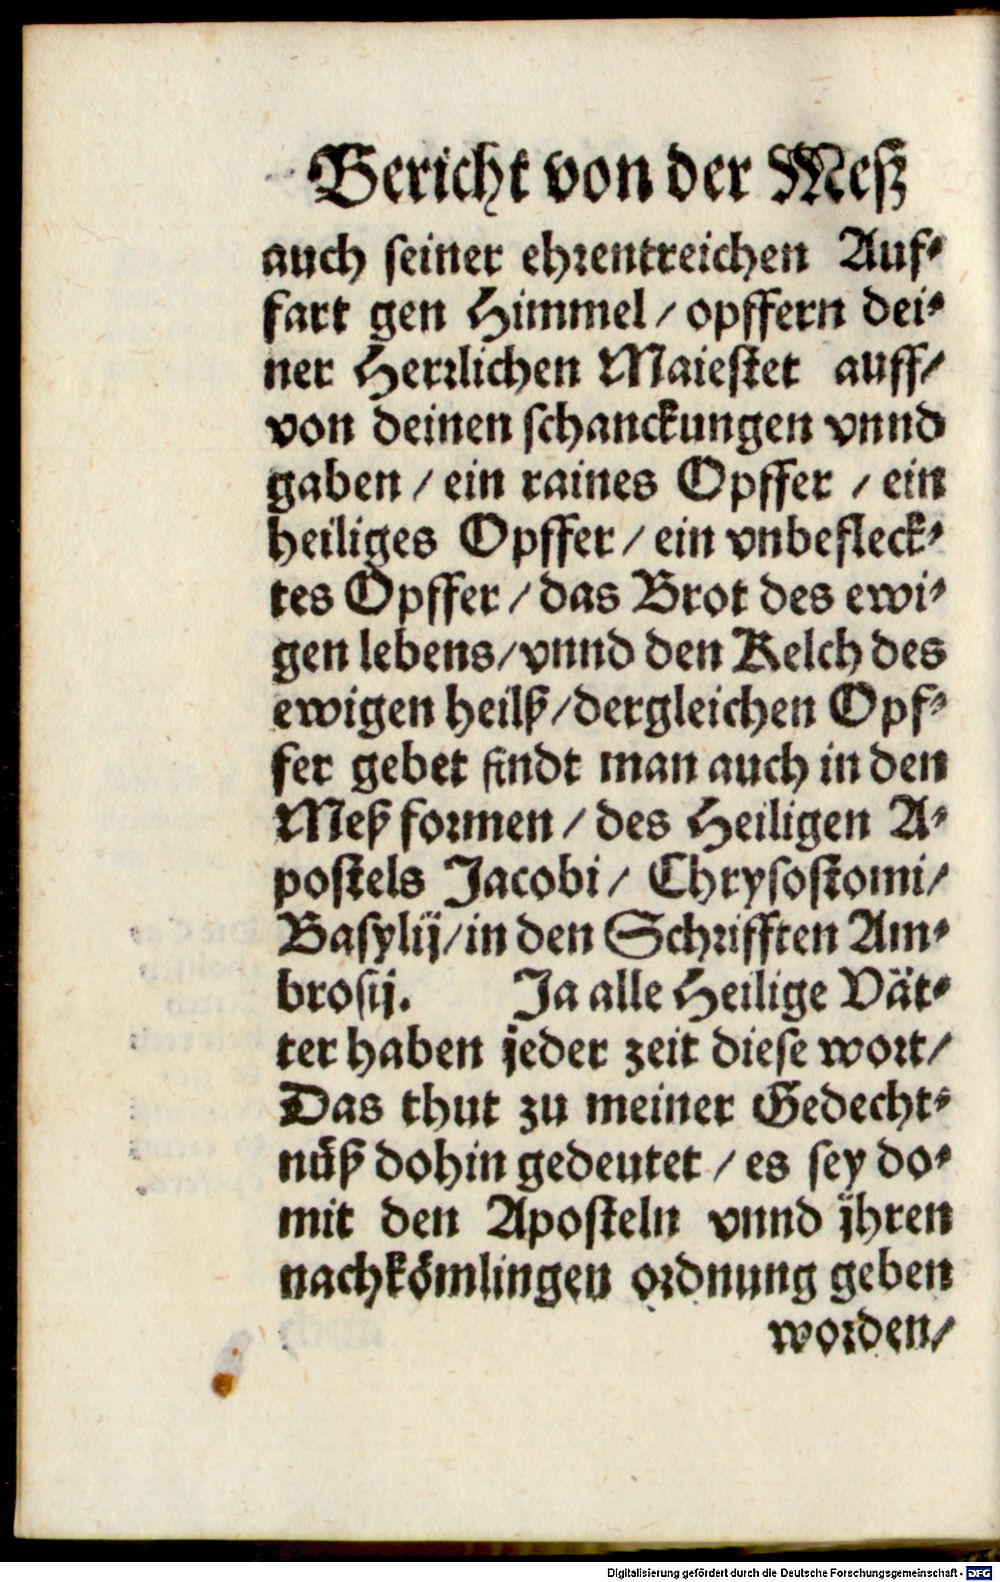 Bericht von der Meß
auch seiner ehrentreichen Auf⸗
fart gen Himmel / opffern dei⸗
ner Herrlichen Maiestet auff /
von deinen schanckungen vnnd
gaben / ein raines Opffer / ein
heiliges Opffer / ein vnbefleck⸗
tes Opffer / das Brot des ewi⸗
gen lebens / vnnd den Kelch des
ewigen heilß / dergleichen Opf⸗
fer gebet findt man auch in den
Meß formen / des Heiligen A⸗
postels Jacobi / Chrysostomi /
Basylij / in den Schrifften Am⸗
brosij. Ja alle Heilige Vät⸗
ter haben jeder zeit diese wort /
Das thut zu meiner Gedecht⸗
nüß dohin gedeutet / es sey do⸗
mit den Aposteln vnnd jhren
nachkömlingen ordnung geben
worden /
Digitalisierung gefördert durch die Deutsche Forschungsgemeinschaft - DFG